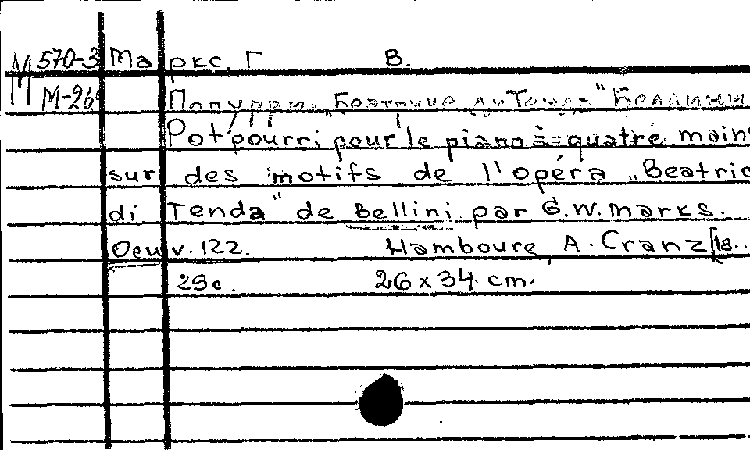 М 570-3 Маркс, Г. В.
М-26 Попурри „Беатриче ди Тенда" Беллини
Potpourri pour le piano à quatre main
sur des motifs de l'opéra „Beatric
di Tenda" de Bellini par G.W. Marks.
Oeuv. 122. Hambourg, A. Cranz [18..
29c. 26 x 34 cm.